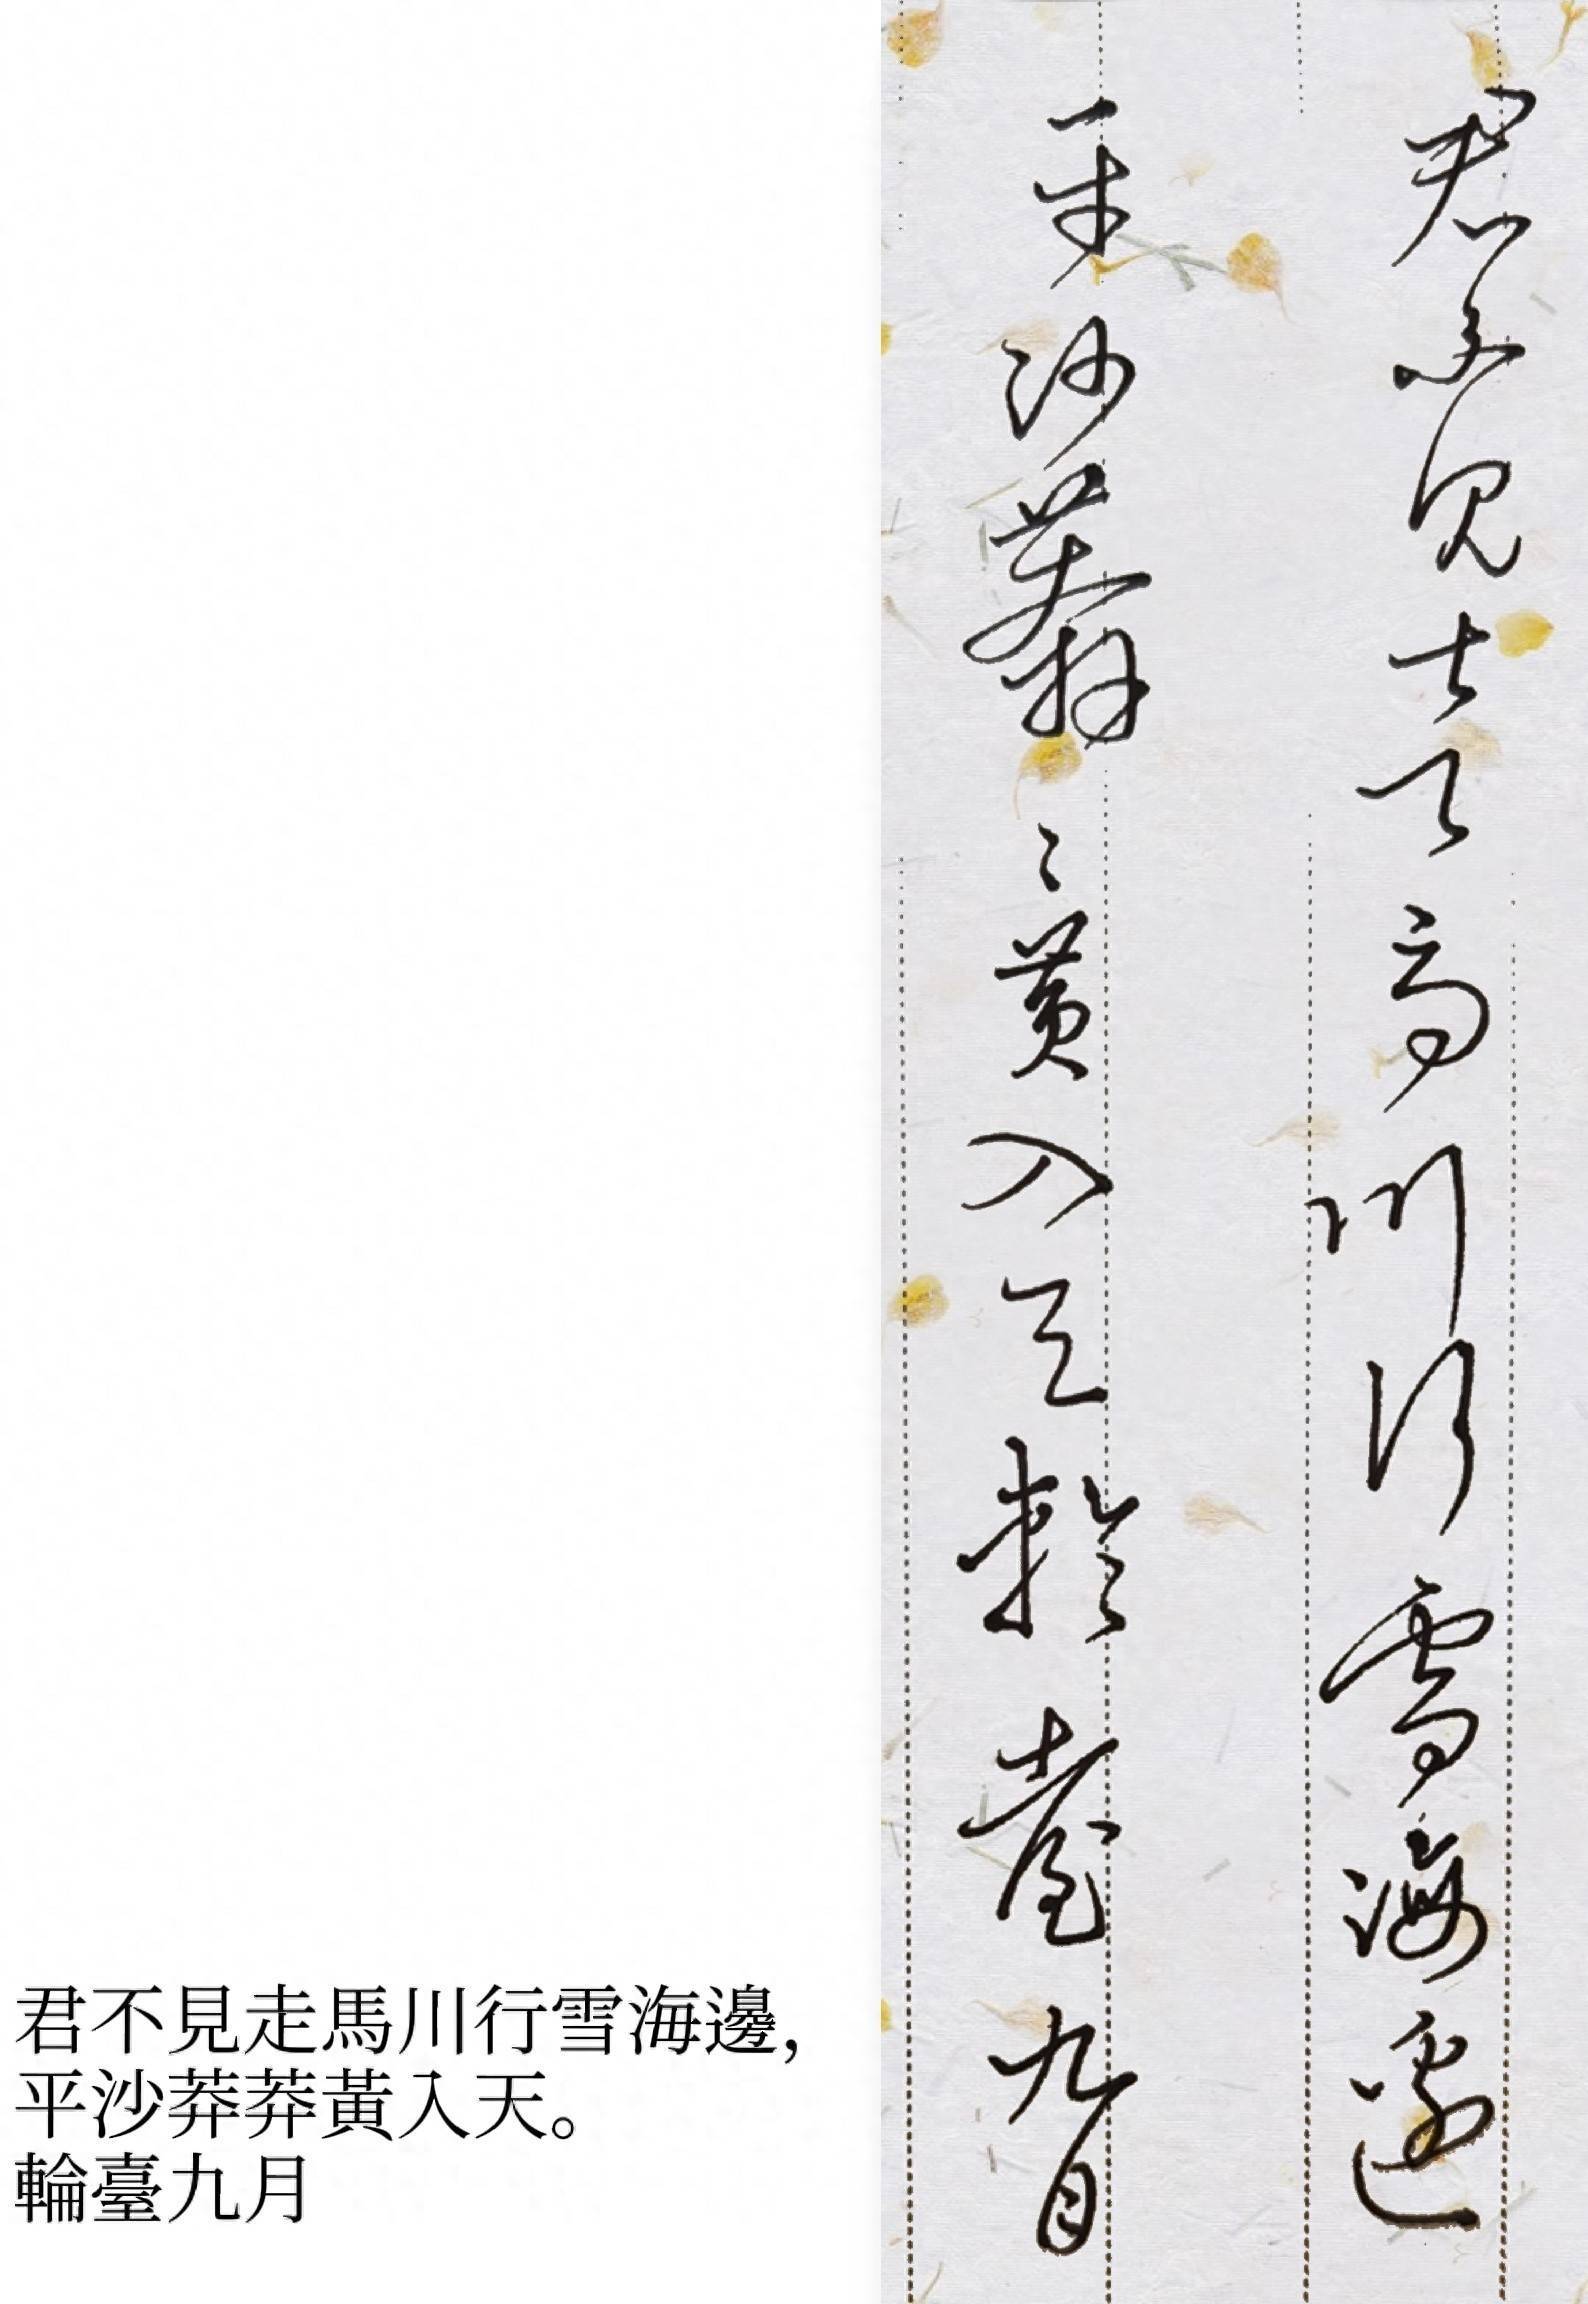 君不見走馬川行雪海邊
平沙莽〻黃入天輪臺九月
君不見走馬川行雪海邊，
平沙莽莽黃入天。
輪臺九月